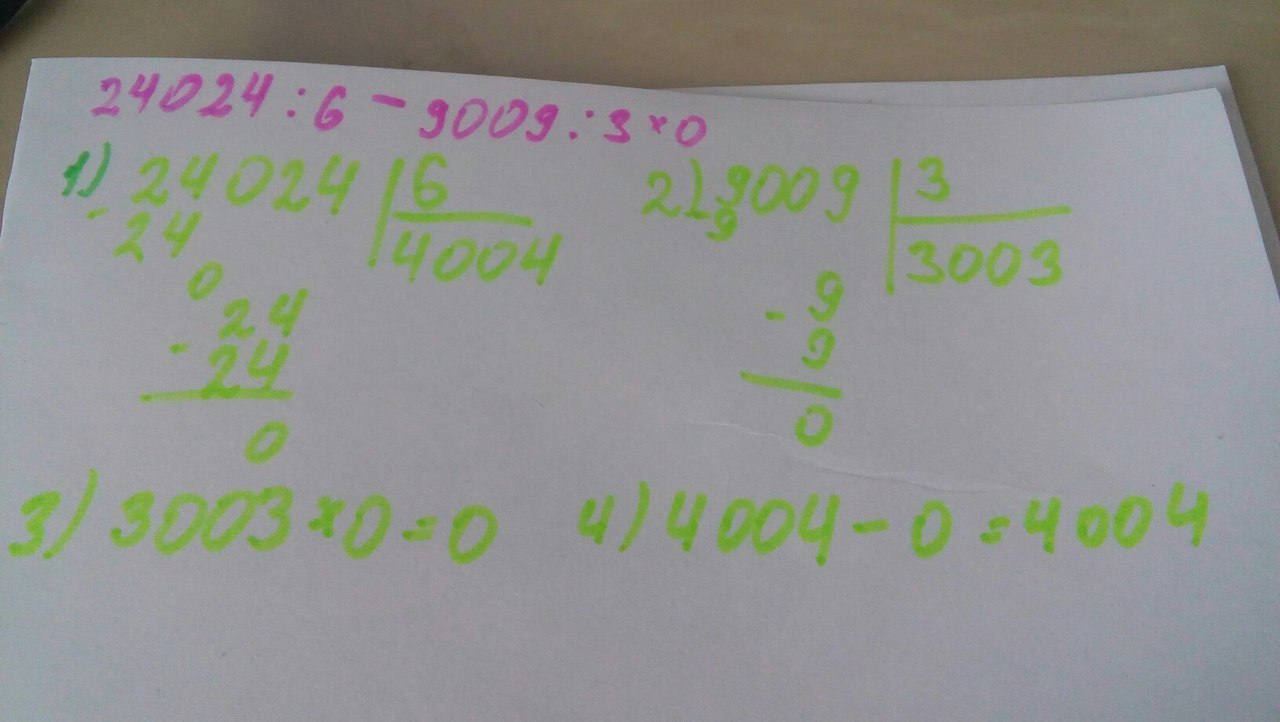 24024 : 6 - 9009 : 3 × 0
1) 24024 | 6
- 24 4004
0
24
- 24
0
2) 9009 | 3
9 3003
- 9
9
0
3) 3003 × 0 = 0
4) 4004 - 0 = 4004